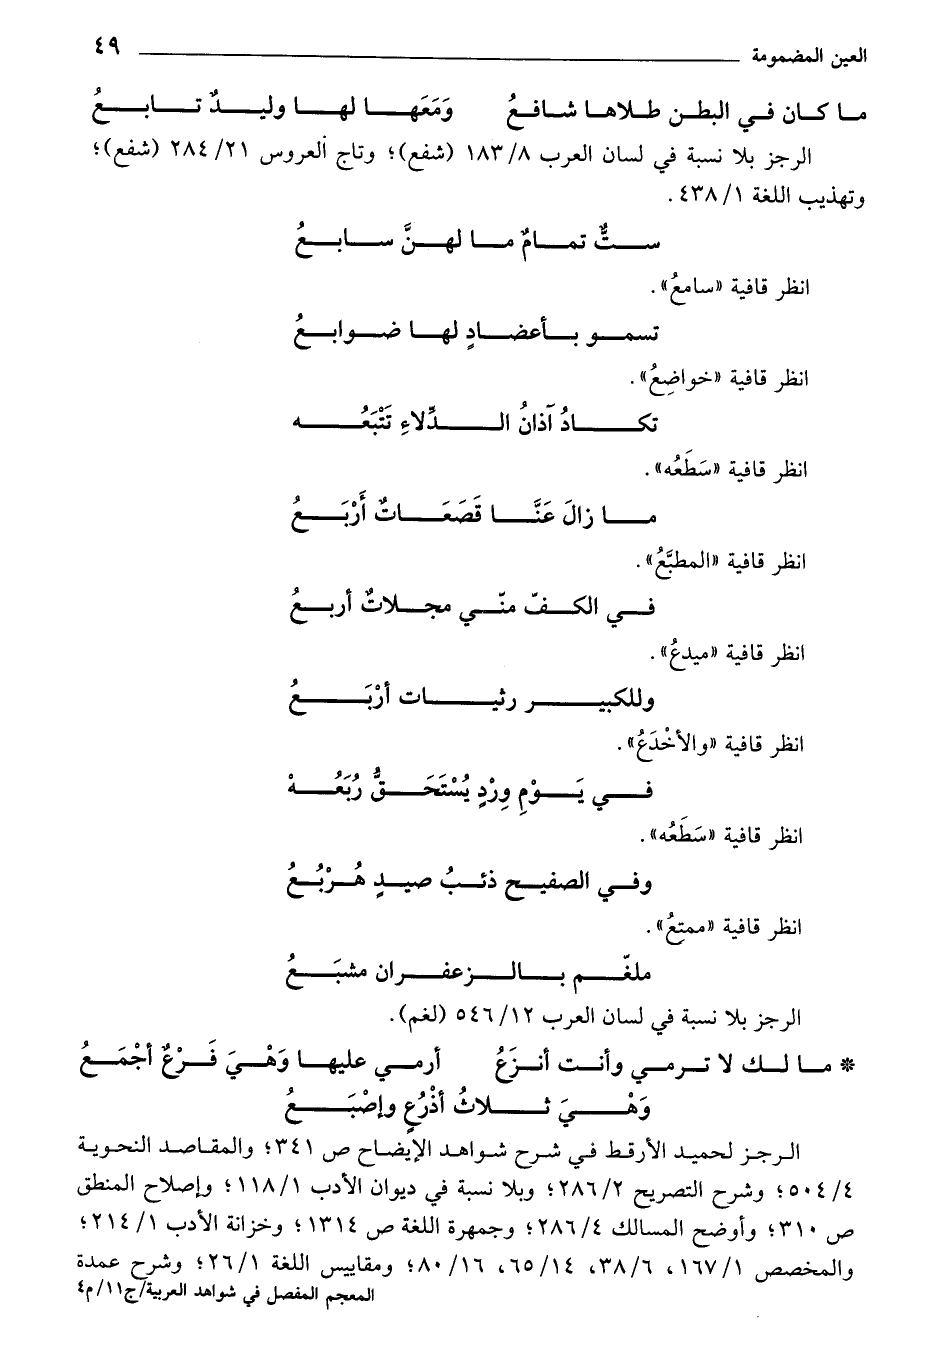 العين المضمومة ٤٩
ما كان في البطن طلاها شافعُ وَمَعَها لها وليدٌ تابعُ
الرجز بلا نسبة في لسان العرب ٨/ ١٨٣ (شفع)؛ وتاج العروس ٢١/ ٢٨٤ (شفع)؛
وتهذيب اللغة ١/ ٤٣٨.
ستٌّ تمامٌ ما لهنَّ سابعُ
انظر قافية «سامعُ».
تسمو بأعضادٍ لها ضوابعُ
انظر قافية «خواضِعُ».
تكادُ آذانُ الدِّلاءِ تَتْبَعُه
انظر قافية «سَطَعُه».
ما زالَ عَنَّا قَصَعَاتٌ أَرْبَعُ
انظر قافية «المطبَّعُ».
في الكفّ منّي مجلاتٌ أربعُ
انظر قافية «ميدعُ».
وللكبير رثيات أرْبَعُ
انظر قافية «والأخْدَعُ».
في يَوْمِ وِرْدٍ يُسْتَحَقُّ رُبَعُهْ
انظر قافية «سَطَعُه».
وفي الصفيح ذئبُ صيدٍ هُرْبُعُ
انظر قافية «ممتعُ».
ملغّم بالزعفران مشبَعُ
الرجز بلا نسبة في لسان العرب ١٢/ ٥٤٦ (لغم).
* ما لك لا ترمي وأنت أنزَعُ أرمي عليها وَهْيَ فَرْعٌ أجْمَعُ
وَهْيَ ثلاثُ أذْرُعٍ وإصْبَعُ
الرجز لحميد الأرقط في شرح شواهد الإيضاح ص ٣٤١؛ والمقاصد النحوية
٤/ ٥٠٤؛ وشرح التصريح ٢/ ٢٨٦؛ وبلا نسبة في ديوان الأدب ١/ ١١٨؛ وإصلاح المنطق
ص ٣١٠؛ وأوضح المسالك ٤/ ٢٨٦؛ وجمهرة اللغة ص ١٣١٤؛ وخزانة الأدب ١/ ٢١٤؛
والمخصص ١/ ١٦٧، ٦/ ٣٨، ١٤/ ٦٥، ١٦/ ٨٠؛ ومقاييس اللغة ١/ ٢٦؛ وشرح عمدة
المعجم المفصل في شواهد العربية/ج١١/م٤